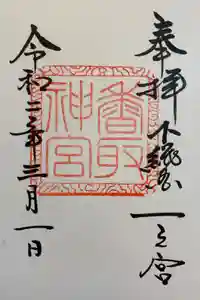 奉拝 下総国
一之宮
香取
神宮
令和二年三月一日